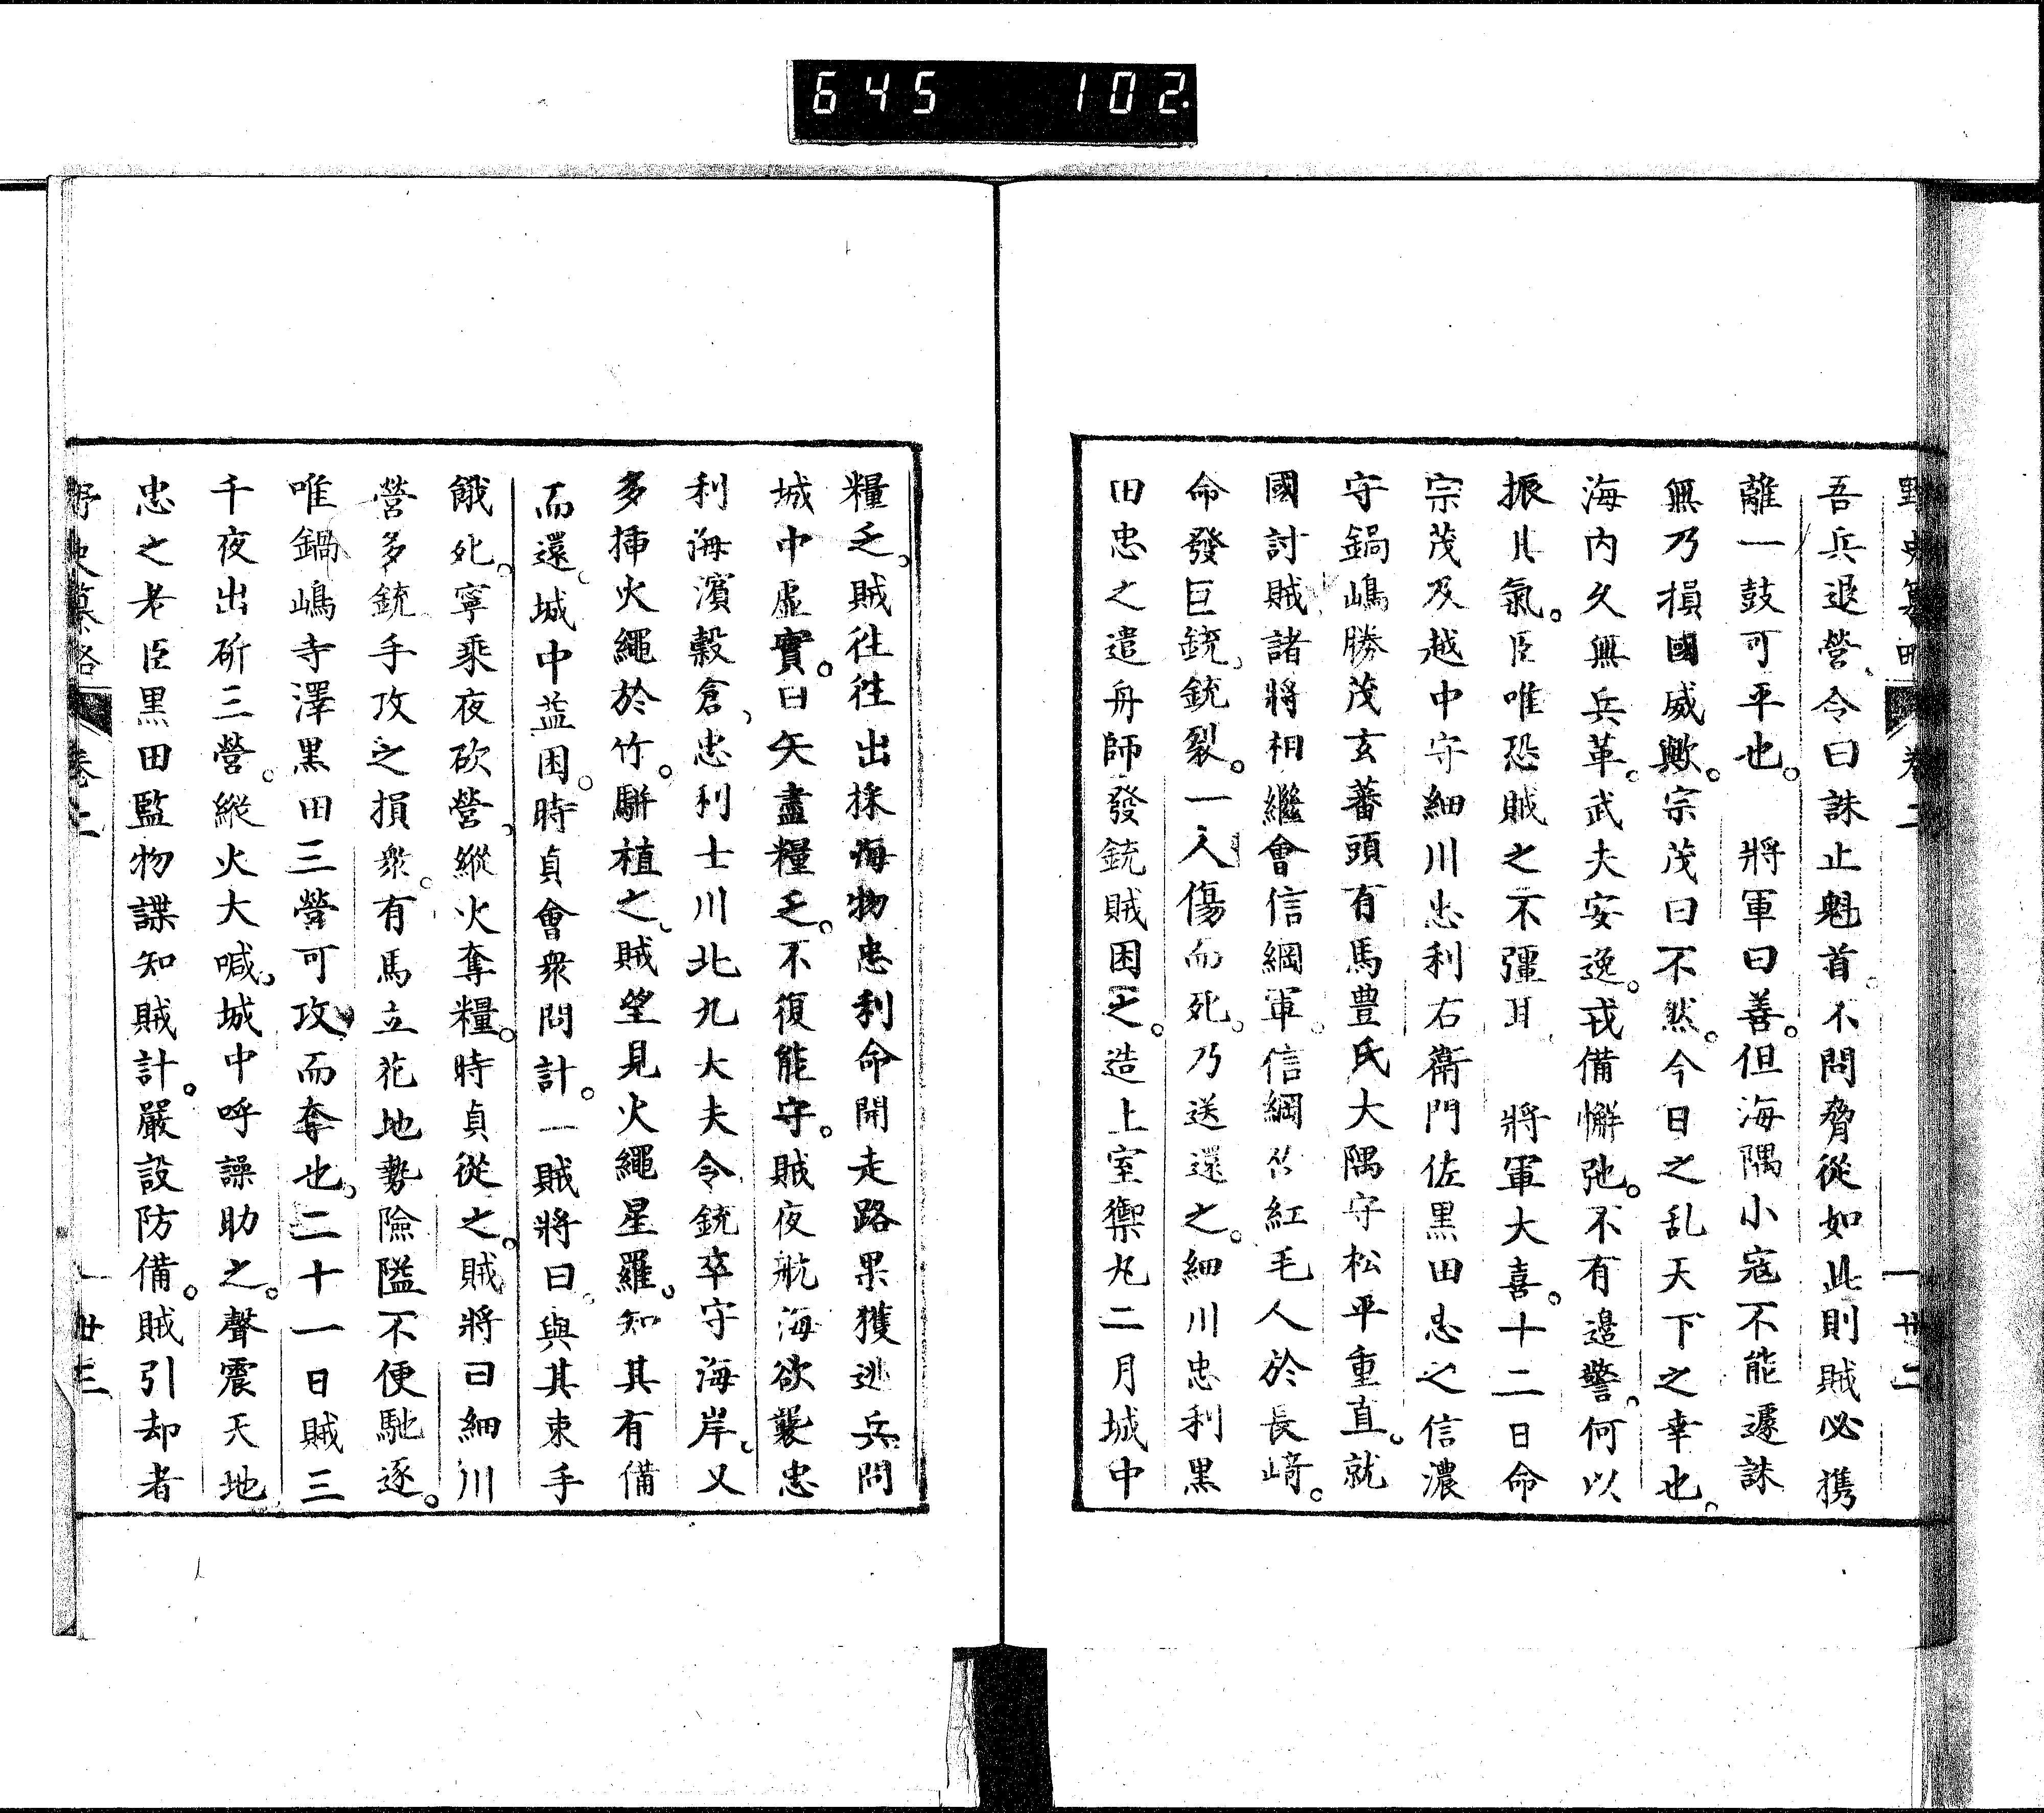 645 102.
野史纂略 卷二 卅二
吾兵退營、令曰誅止魁首。不問脅從如此則賊必携
離一鼓可平也。 將軍曰善。但海隅小寇不能遽誅
無乃損國威歟。宗茂曰不然。今日之乱天下之幸也。
海内久無兵革。武夫安逸。戎備懈弛。不有邊警。何以
振其氣。臣唯恐賊之不彊耳 將軍大喜。十二日命
宗茂及越中守細川忠利右衛門佐黒田忠之信濃
守鍋嶋勝茂玄蕃頭有馬豊氏大隅守松平重直。就
國討賊諸將相繼會信綱軍。信綱召紅毛人於長﨑。
命發巨銃、銃裂。一人傷而死。乃送還之。細川忠利黒
田忠之遣舟師發銃賊困之。造上室禦丸二月城中
糧乏、賊往往出採海物忠利命開走路果獲逃兵問
城中虛實。曰矢盡糧乏。不復能守。賊夜航海欲襲忠
利海濱穀倉、忠利士川北九大夫令銃卒守海岸、又
多挿火繩於竹。駢植之、賊望見火繩星羅。知其有備
而還。城中益困。時貞會衆問計。一賊將曰。與其束手
餓死。寧乘夜砍營、縱火奪糧。時貞從之。賊將曰細川
營多銃手攻之損衆。有馬立花地勢險隘不便馳逐。
唯鍋嶋寺澤黒田三營可攻、而奪也、二十一日賊三
千夜出斫三營。縱火大喊、城中呼譟助之。聲震天地
忠之老臣黒田監物諜知賊計。嚴設防備。賊引却者
野史纂略 卷二 卅三